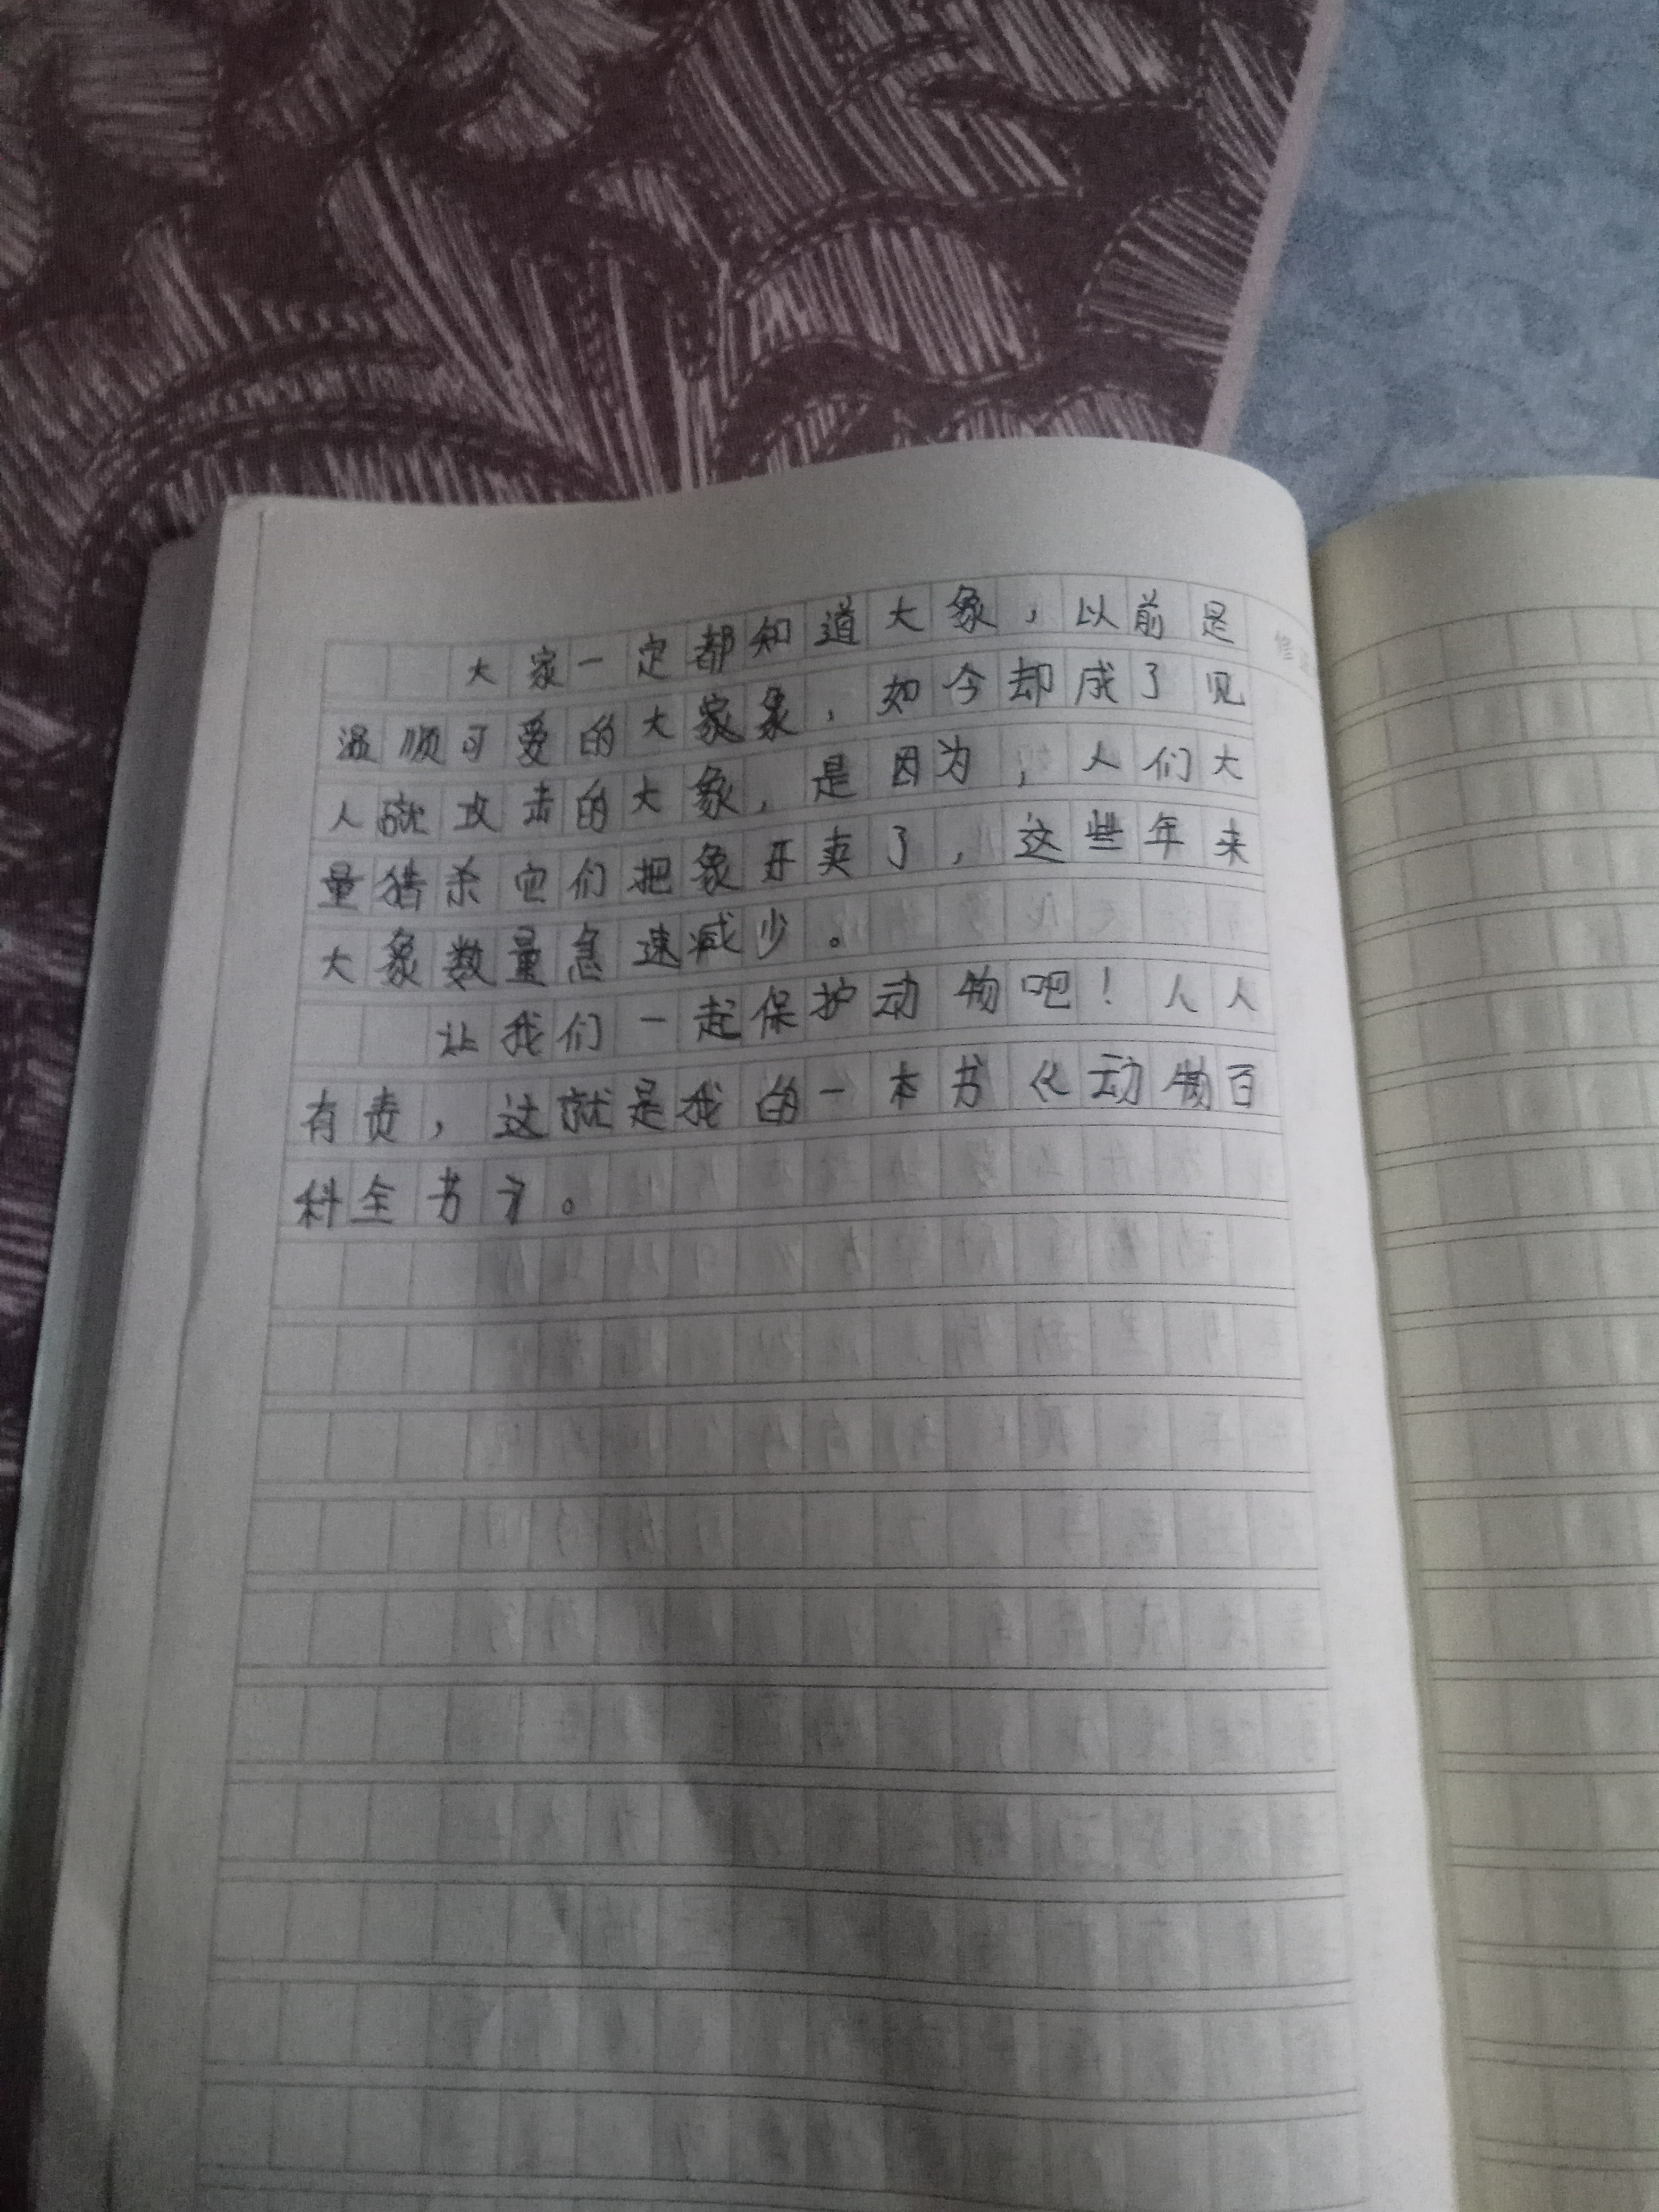 大家一定都知道大象，以前是
温顺可爱的大家象，如今却成了见
人就攻击的大象，是因为，人们大
量猎杀它们把象牙卖了，这些年来
大象数量急速减少。
让我们一起保护动物吧！人人
有责，这就是我的一本书《动物百
科全书》。